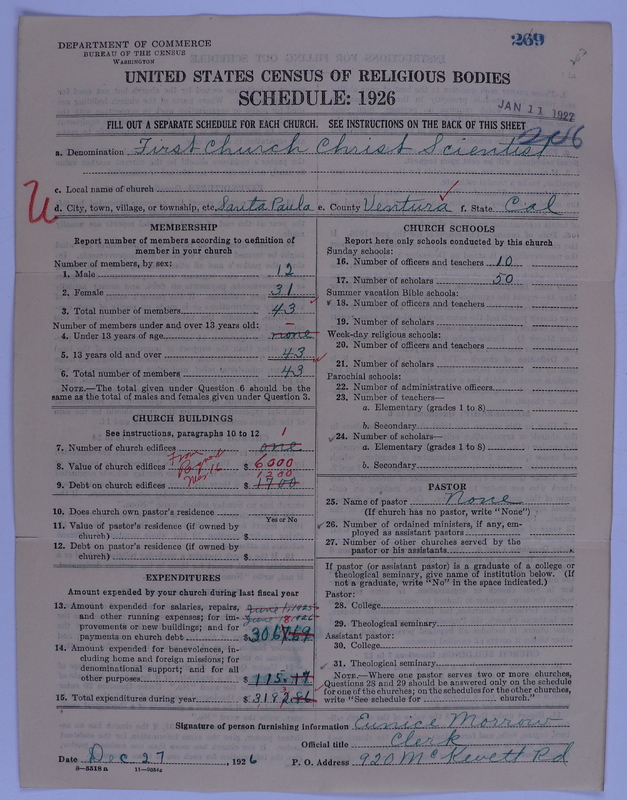 269
DEPARTMENT OF COMMERCE
BUREAU OF THE CENSUS
WASHINGTON
UNITED STATES CENSUS OF RELIGIOUS BODIES
SCHEDULE: 1926
JAN 11 1927
FILL OUT A SEPARATE SCHEDULE FOR EACH CHURCH. SEE INSTRUCTIONS ON THE BACK OF THIS SHEET
a. Denomination First Church Christ Scientist
c. Local name of church
d. City, town, village, or township, etc. Santa Paula e. County Ventura f. State Cal
MEMBERSHIP
Report number of members according to definition of member in your church
Number of members, by sex:
1. Male 12
2. Female 31
3. Total number of members 43
Number of members under and over 13 years old:
4. Under 13 years of age none
5. 13 years old and over 43
6. Total number of members 43
NOTE.—The total given under Question 6 should be the same as the total of males and females given under Question 3.
CHURCH BUILDINGS
See instructions, paragraphs 10 to 12
7. Number of church edifices one 1
8. Value of church edifices $ 6000
9. Debt on church edifices $ 1700
10. Does church own pastor's residence
Yes or No
11. Value of pastor's residence (if owned by church) $
12. Debt on pastor's residence (if owned by church) $
EXPENDITURES
Amount expended by your church during last fiscal year
13. Amount expended for salaries, repairs, and other running expenses; for improvements or new buildings; and for payments on church debt $ 3067.69
14. Amount expended for benevolences, including home and foreign missions; for denominational support; and for all other purposes $ 115.17
15. Total expenditures during year $
CHURCH SCHOOLS
Report here only schools conducted by this church
Sunday schools:
16. Number of officers and teachers 10
17. Number of scholars 50
Summer vacation Bible schools:
18. Number of officers and teachers
19. Number of scholars
Week-day religious schools:
20. Number of officers and teachers
21. Number of scholars
Parochial schools:
22. Number of administrative officers
23. Number of teachers—
a. Elementary (grades 1 to 8)
b. Secondary
24. Number of scholars—
a. Elementary (grades 1 to 8)
b. Secondary
PASTOR
25. Name of pastor None
(If church has no pastor, write "None")
26. Number of ordained ministers, if any, employed as assistant pastors
27. Number of other churches served by the pastor or his assistants
If pastor (or assistant pastor) is a graduate of a college or theological seminary, give name of institution below. (If not a graduate, write "No" in the space indicated.)
Pastor:
28. College
29. Theological seminary
Assistant pastor:
30. College
31. Theological seminary
NOTE.—Where one pastor serves two or more churches, Questions 28 and 29 should be answered only on the schedule for one of the churches; on the schedules for the other churches, write "See schedule for church."
Signature of person furnishing information Eunice Morrow
Official title Clerk
Date Dec 27, 1926 P. O. Address 920 McKevett Rd
8-5518 a